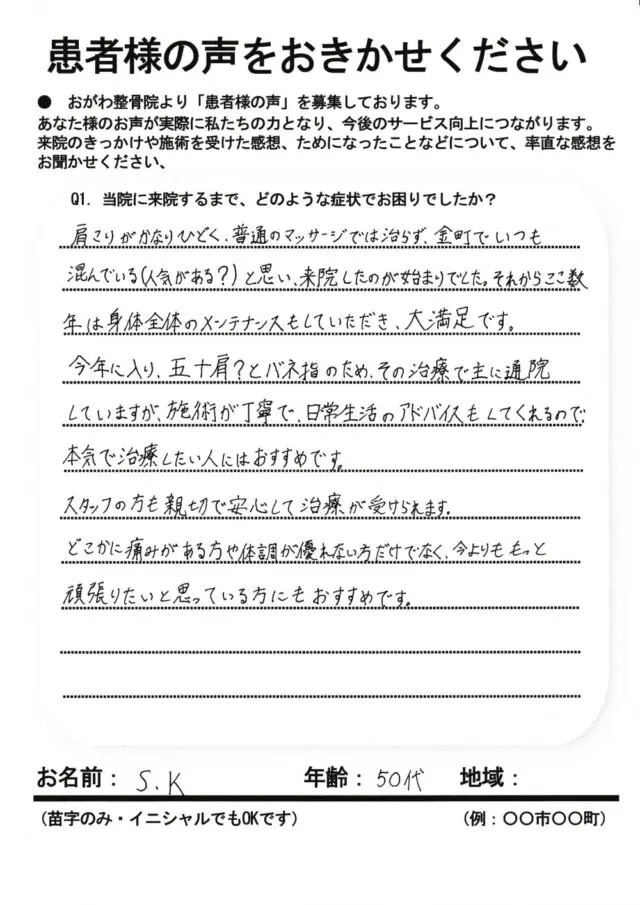 患者様の声をおきかせください
● おがわ整骨院より「患者様の声」を募集しております。
あなた様のお声が実際に私たちの力となり、今後のサービス向上につながります。
来院のきっかけや施術を受けた感想、ためになったことなどについて、率直な感想を
お聞かせください、
Q1. 当院に来院するまで、どのような症状でお困りでしたか？
肩こりがかなりひどく、普通のマッサージでは治らず、金町でいつも
混んでいる(人気がある?)と思い、来院したのが始まりでした。それからここ数
年は身体全体のメンテナンスもしていただき、大満足です。
今年に入り、五十肩?とバネ指のため、その治療で主に通院
していますが、施術が丁寧で、日常生活のアドバイスもしてくれるので、
本気で治療したい人にはおすすめです。
スタッフの方も親切で安心して治療が受けられます。
どこかに痛みがある方や体調が優れない方だけでなく、今よりももっと
頑張りたいと思っている方にもおすすめです。
お名前： S.K 年齢： 50代 地域：
（苗字のみ・イニシャルでもOKです） （例：〇〇市〇〇町）